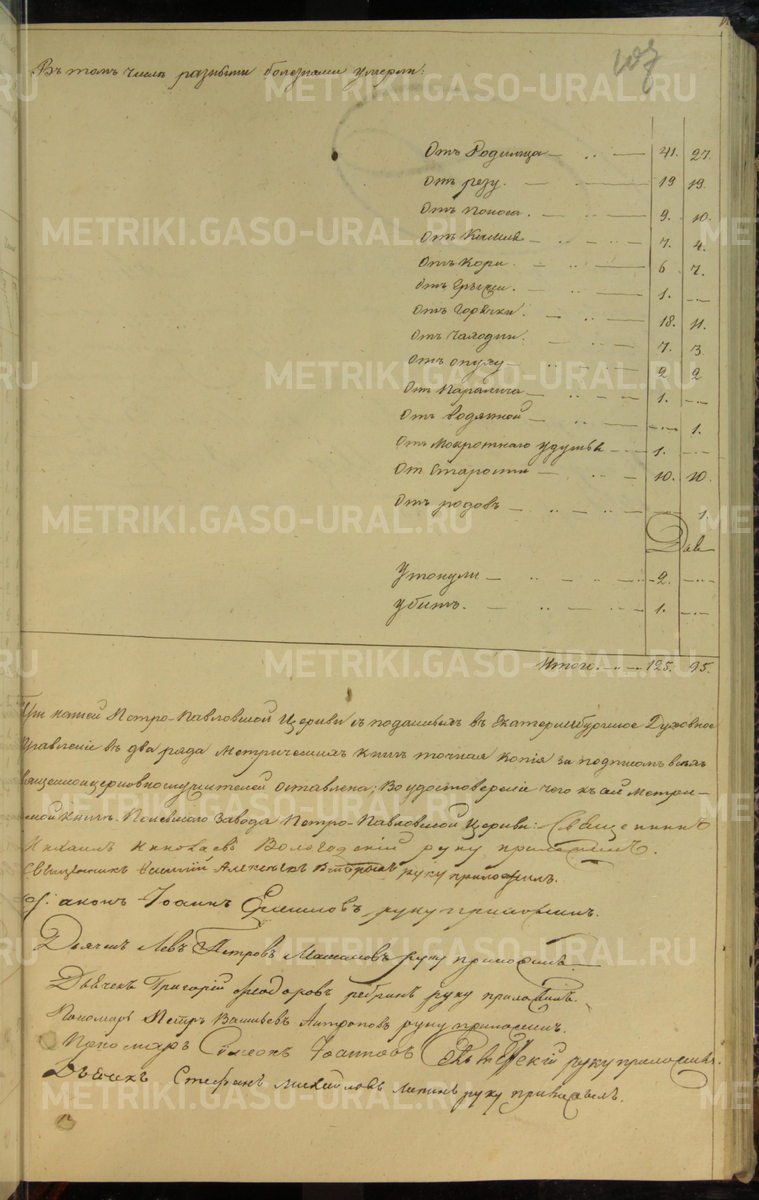 107
Въ томъ числѣ разными болезнями умерли:
Отъ Родимца — 41. 27.
Отъ резу. — 19 19.
Отъ Поноса. — 9. 10.
Отъ Кашля — 7. 4.
Отъ Кори — 6. 7.
Отъ Грыжи. — 1. —
Отъ Горячки — 18. 11.
Отъ Чахотки. — 7. 3.
Отъ опуху — 2 2
Отъ Паралича — 1. —
Отъ Водяной — — 1.
Отъ Мокротнаго удушья — 1. —
От Старости — 10. 10.
Отъ родовъ — — 1.
Утонули — 2. —
Убитъ. — 1. —
Итого. — 125. 95.
При нашей Петро-Павловской Церкви съ поданныхъ въ Екатеринбургское Духовное
Правленіе въ два ряда Метрическихъ Книгъ точная копія за подписомъ всехъ
священноцерковнослужителей оставлена; Во удостовереніе чего къ сей Метри-
ческой книгѣ Полевскаго Завода Петро-Павловской Церкви: Священникъ
Михаилъ Вологодскій руку приложилъ.
Священникъ Василій Алексѣевъ руку приложилъ.
Діаконъ Іоаннъ руку приложилъ.
Дьячекъ Левъ Петровъ руку приложилъ.
Дьячекъ Григорій Феодоровъ руку приложилъ.
Пономарь Петръ Васильевъ Антроповъ руку приложилъ.
Пономарь Симеонъ Іоанновъ руку приложилъ.
Дьячекъ Стефанъ Михайловъ руку приложилъ.
METRIKI.GASO-URAL.RU